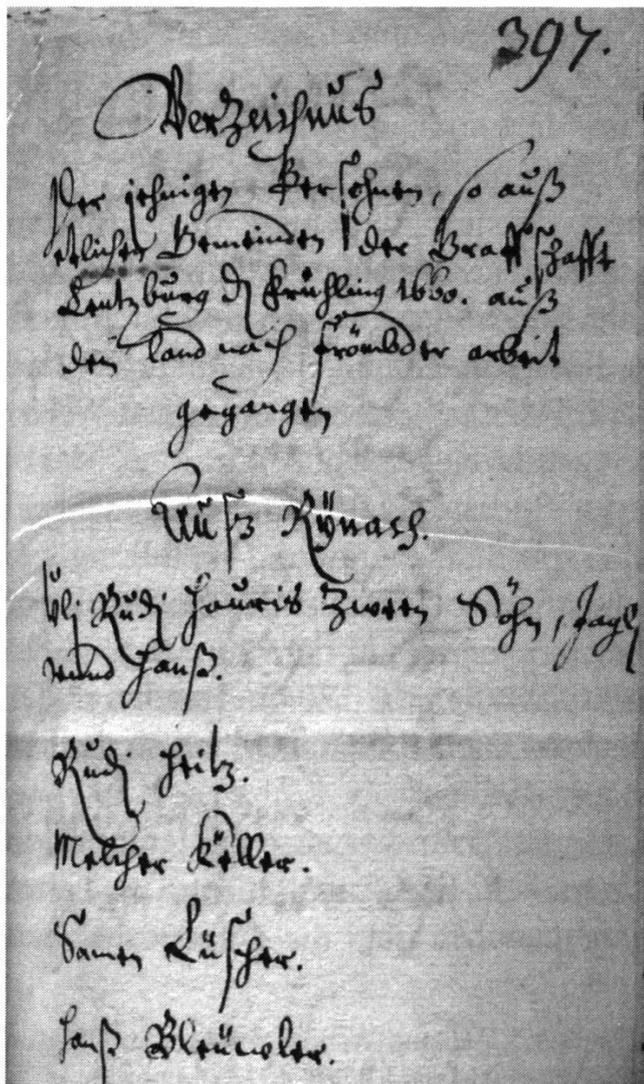 397.
Verzeichnus
Der jehnigen Persohnen, so auß
etlichen Gemeinden der Graffschafft
Lentzburg dſ Frühling 1660. auß
dem land nach frömbder arbeit
gegangen
Auß Rÿnach.
Ulj Rudj Hauris zween Söhn, Jagli
unnd Hanß.
Rudj Heitz.
Melcher Keller.
Samen Lüscher.
Hanß Bleüwler.